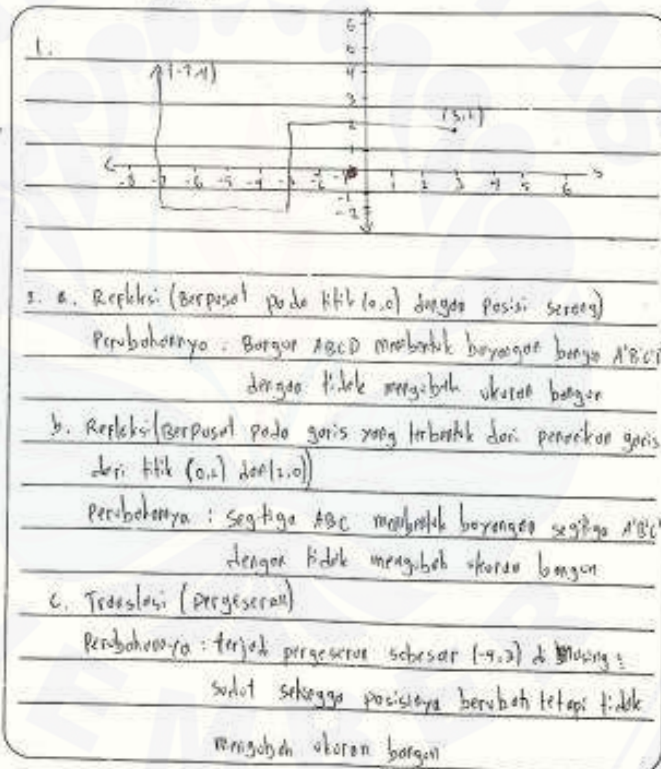 1.
6
5
4
(-7,4)
3
2
(3,2)
1
-8 -7 -6 -5 -4 -3 -2 -1 1 2 3 4 5 6
-1
-2
2. a. Refleksi (Berpusat pada titik (0,0) dengan posisi serong)
Perubahannya : Bangun ABCD membentuk bayangan bangun A'B'C'D'
dengan tidak mengubah ukuran bangun
b. Refleksi (Berpusat pada garis yang terbentuk dari penarikan garis
dari titik (0,2) dan (2,0))
Perubahannya : segitiga ABC membentuk bayangan segitiga A'B'C'
dengan tidak mengubah ukuran bangun
c. Translasi (pergeseran)
Perubahannya : terjadi pergeseran sebesar (-9,3) di Masing2
sudut sehingga posisinya berubah tetapi tidak
mengubah ukuran bangun